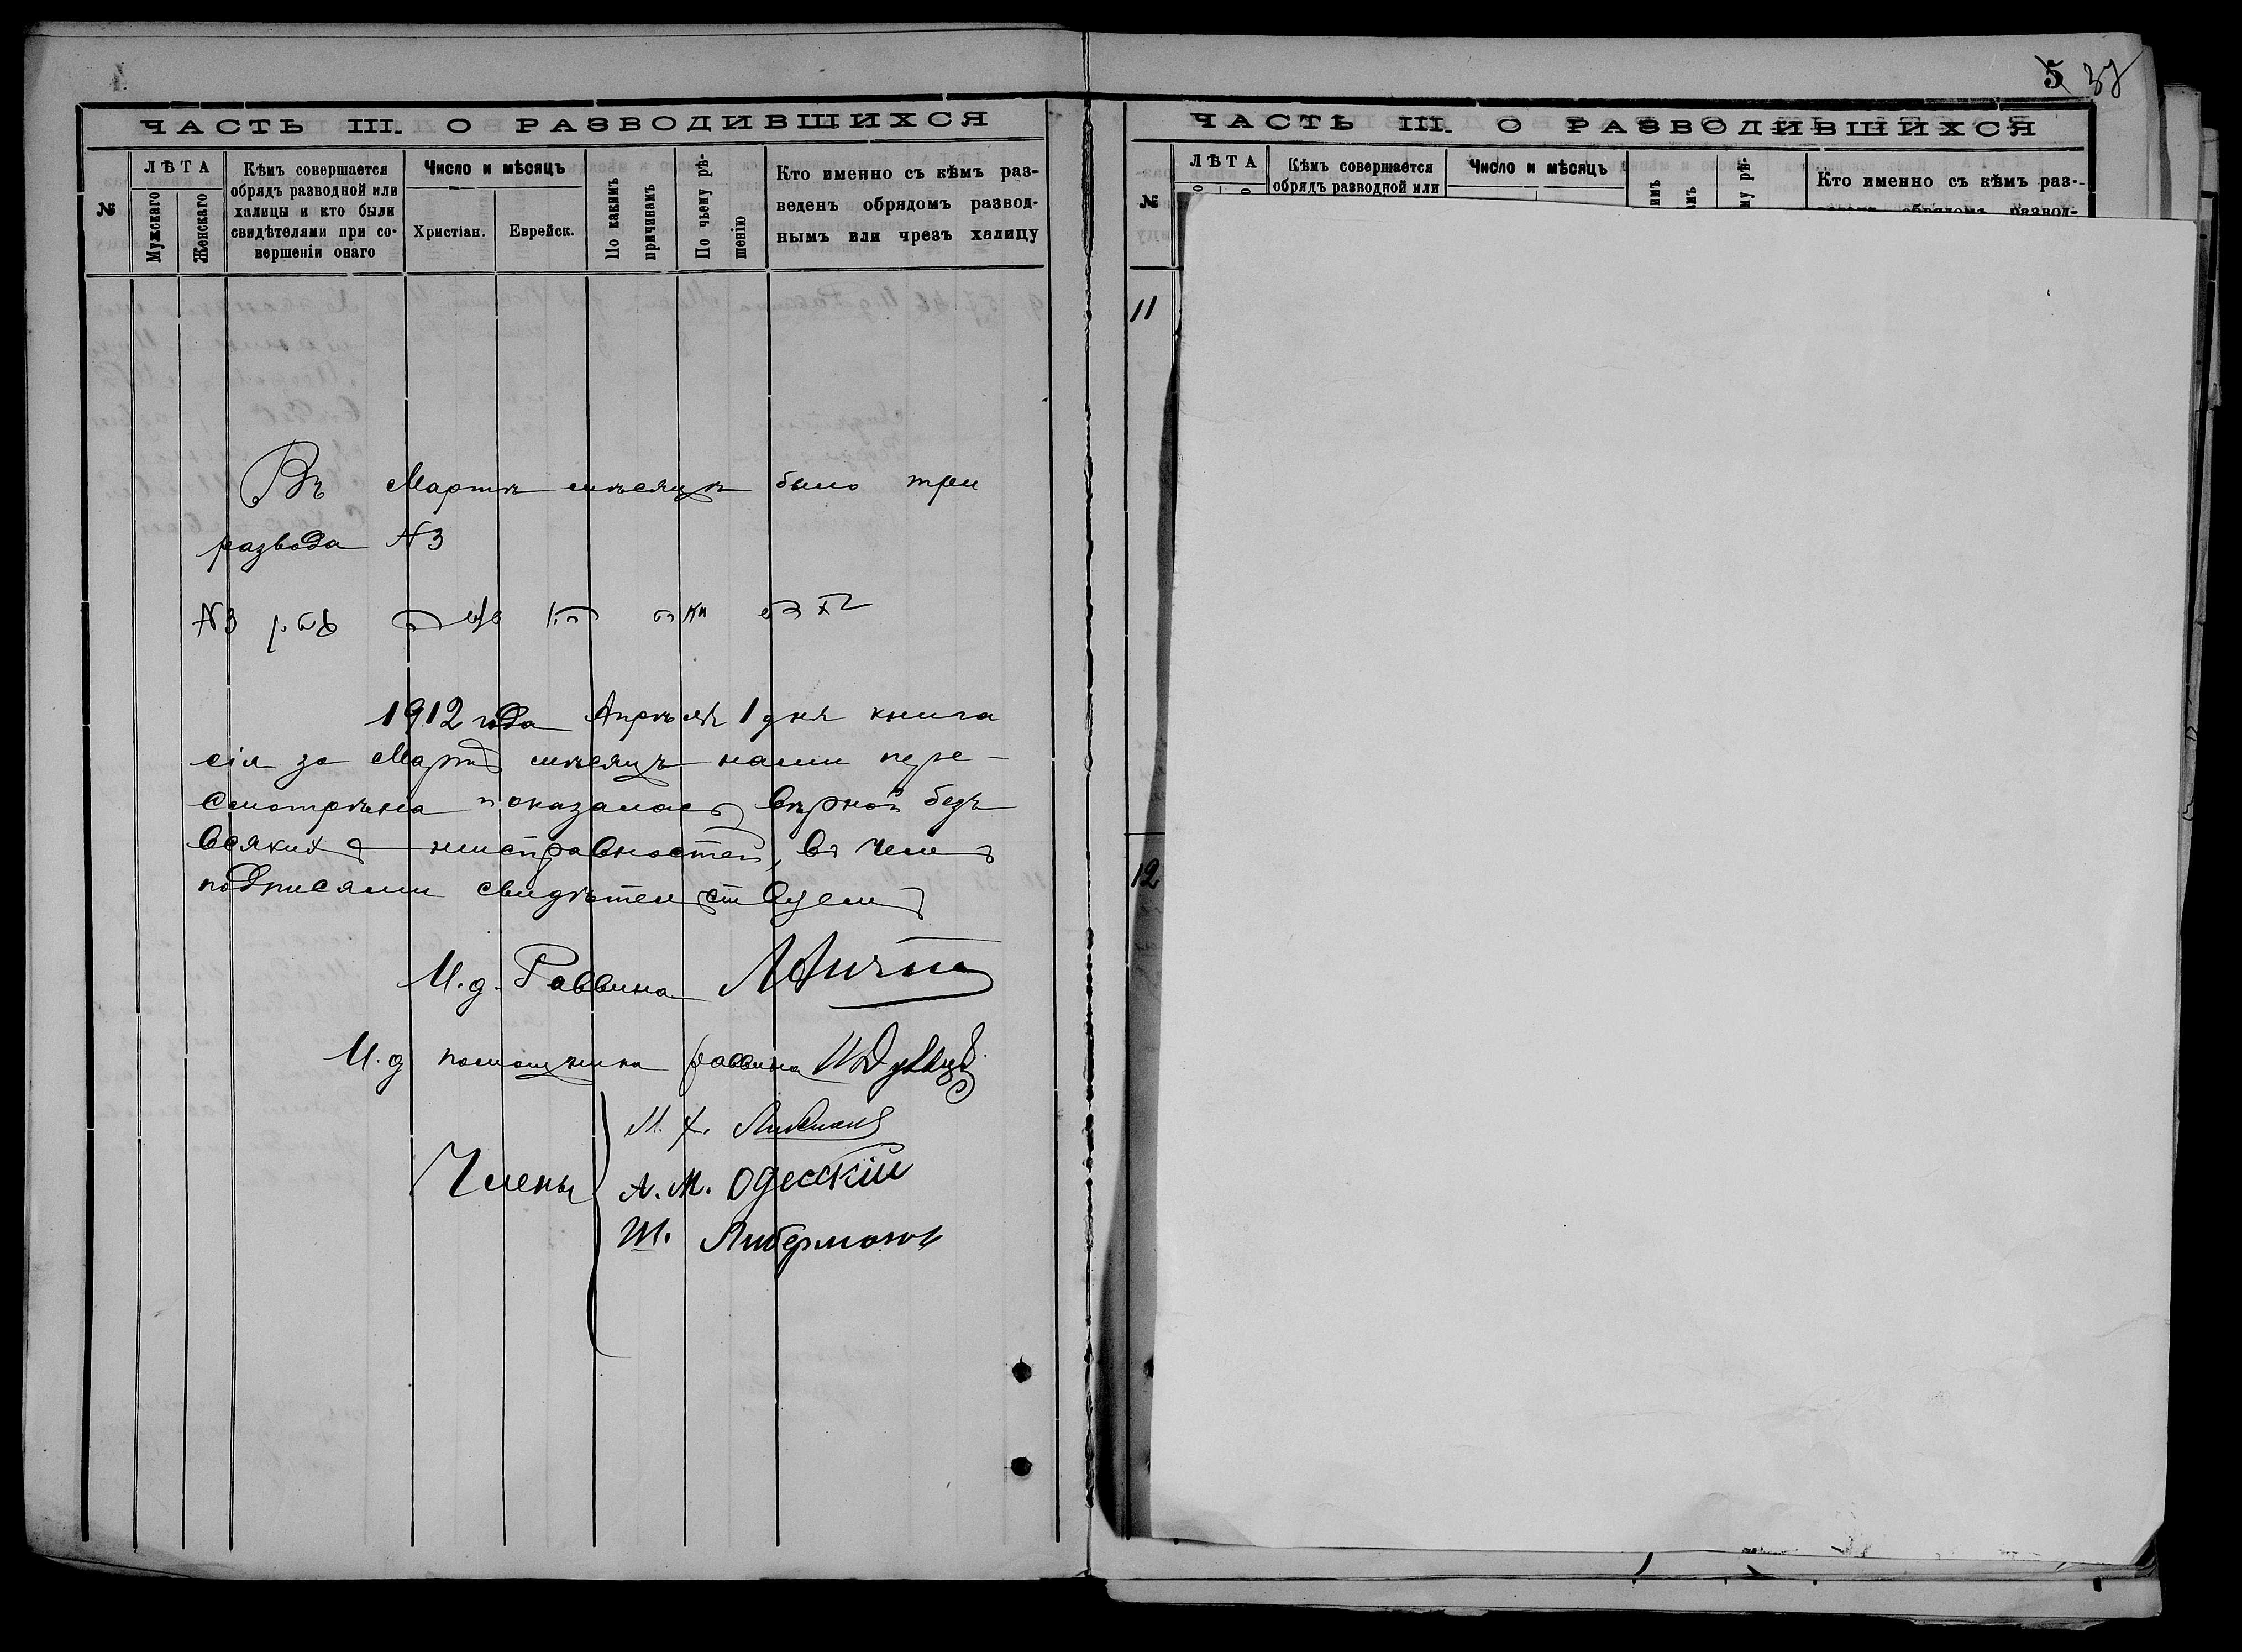 ЧАСТЬ III. О РАЗВОДИВШИХСЯ
№
ЛѢТА
Мужскаго
Женскаго
Кѣмъ совершается
обрядъ разводной или
халицы и кто были
свидѣтелями при со-
вершеніи онаго
Число и мѣсяцъ
Христіан.
Еврейск.
По какимъ
причинамъ
По чьему рѣ-
шенію
Кто именно съ кѣмъ раз-
веденъ обрядомъ развод-
нымъ или чрезъ халицу
Въ Мартѣ мѣсяцѣ было три
развода №3
№3
1912 года Апрѣля 1 дня книга
сія за Мартъ мѣсяцъ нами пере-
смотрѣна и оказалась вѣрной безъ
всякихъ неисправностей, въ чемъ
подписями свидѣтельствуемъ
И. д. Раввина
И. д. помощника раввина
Члены
А. М. Одесскій
Ш. Либерманъ
5
ЧАСТЬ III. О РАЗВОДИВШИХСЯ
№
ЛѢТА
Кѣмъ совершается
обрядъ разводной или
Число и мѣсяцъ
Кто именно съ кѣмъ раз-
обрядомъ развод-
11
12